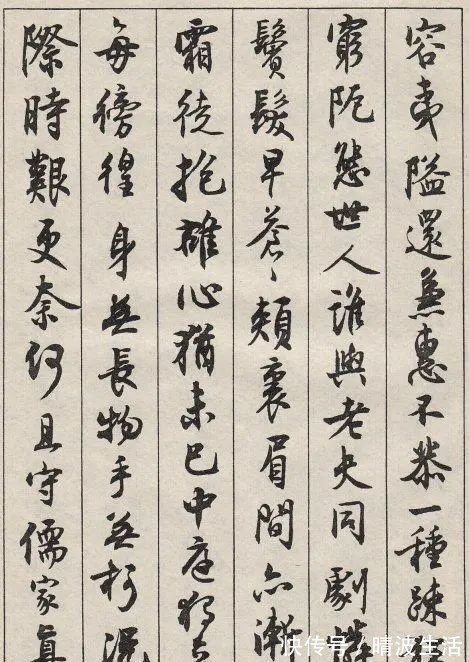 容夷隘還兼惠不恭一種踈
窮阨態世人誰與老夫同劇
鬢髮早蒼〻頰裏眉間亦漸
霜徒抱雄心猶未已中庭獨
每徬徨身無長物手無柯況
際時艱更奈何且守儒家真
快传号 晴波生活